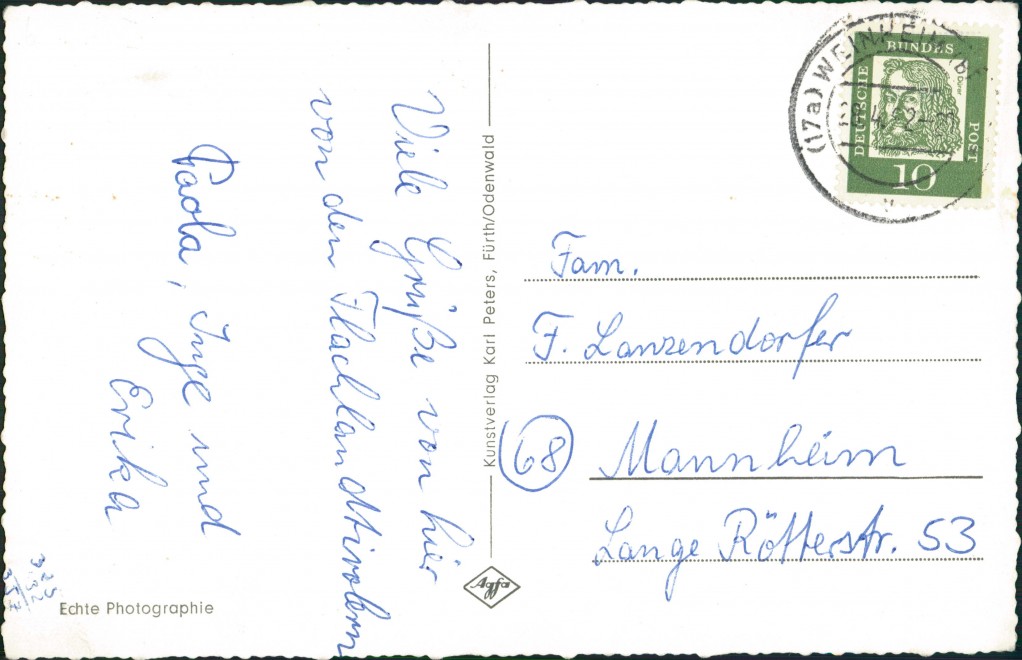 Viele Grüße von hier
von den Flachlandtirolern
Paola, Inge und
Erika
Echte Photographie
Kunstverlag Karl Peters, Fürth/Odenwald
Agfa
(17a) WEINHEIM
DEUTSCHE
BUNDES
POST
Dürer
10
Fam.
F. Lanzendorfer
68 Mannheim
Lange Rötterstr. 53